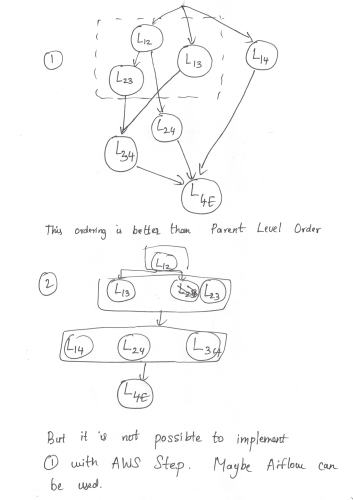 ①
L12
L23
L13
L14
L24
L34
L4E
This ordering is better than Parent Level Order
②
L12
L13
L23
L14
L24
L34
L4E
But it is not possible to implement
① with AWS Step. Maybe Airflow can
be used.